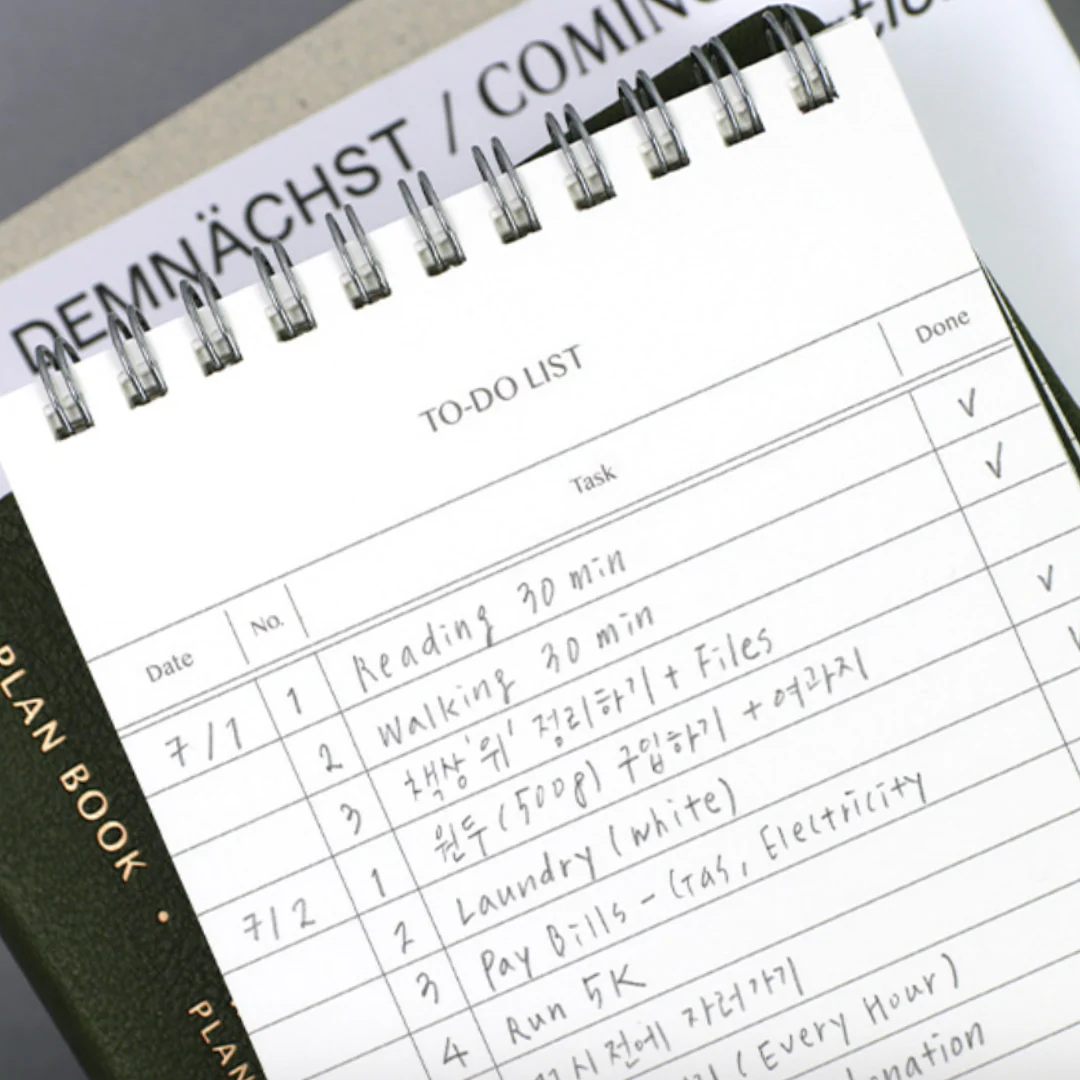 DEMNÄCHST / COMING
TO-DO LIST
Date No. Task Done
7/1 1 Reading 30 min √
2 Walking 30 min √
3 책상'위' 정리하기 + Files
7/2 1 원두(500g) 구입하기 + 여과지 √
2 Laundry (white)
3 Pay Bills - Gas, Electricity
4 Run 5K
시 전에 자러가기
(Every Hour)
PLAN BOOK •
PLAN